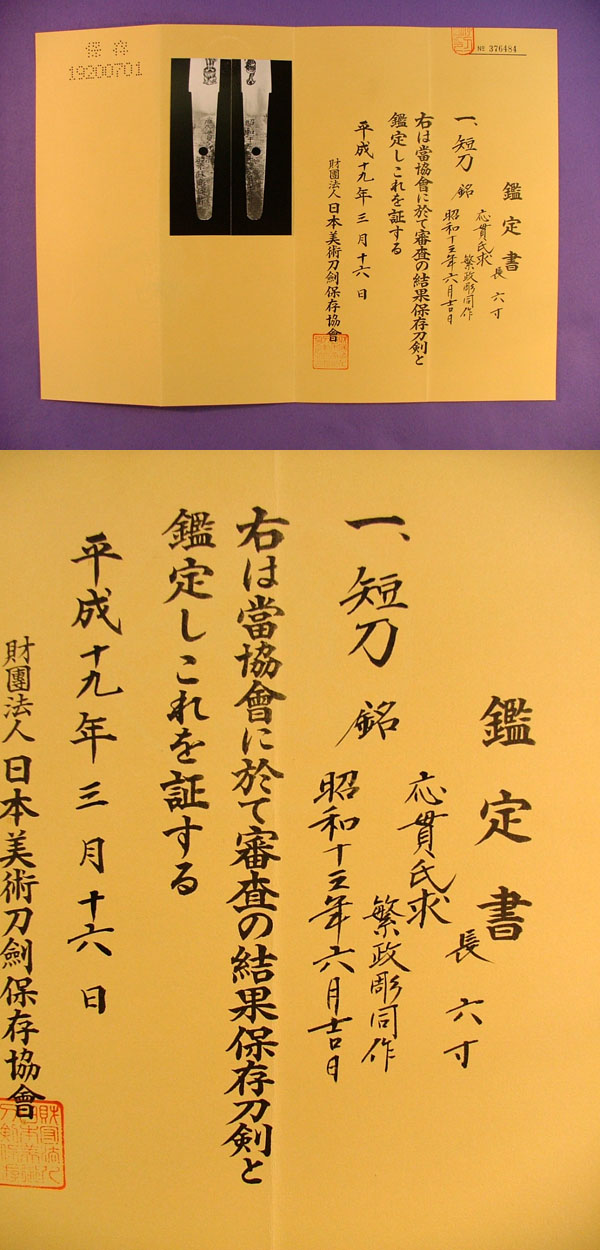 保存
19200701
№ 376484
鑑定書
一、短刀 銘
長 六寸
応貫氏求
繁政彫同作
昭和十三年六月吉日
右は當協會に於て審査の結果保存刀剣と
鑑定しこれを証する
平成十九年三月十六日
財團法人 日本美術刀劍保存協會
鑑定書
一、短刀 銘
長 六寸
応貫氏求
繁政彫同作
昭和十三年六月吉日
右は當協會に於て審査の結果保存刀剣と
鑑定しこれを証する
平成十九年三月十六日
財團法人 日本美術刀劍保存協會